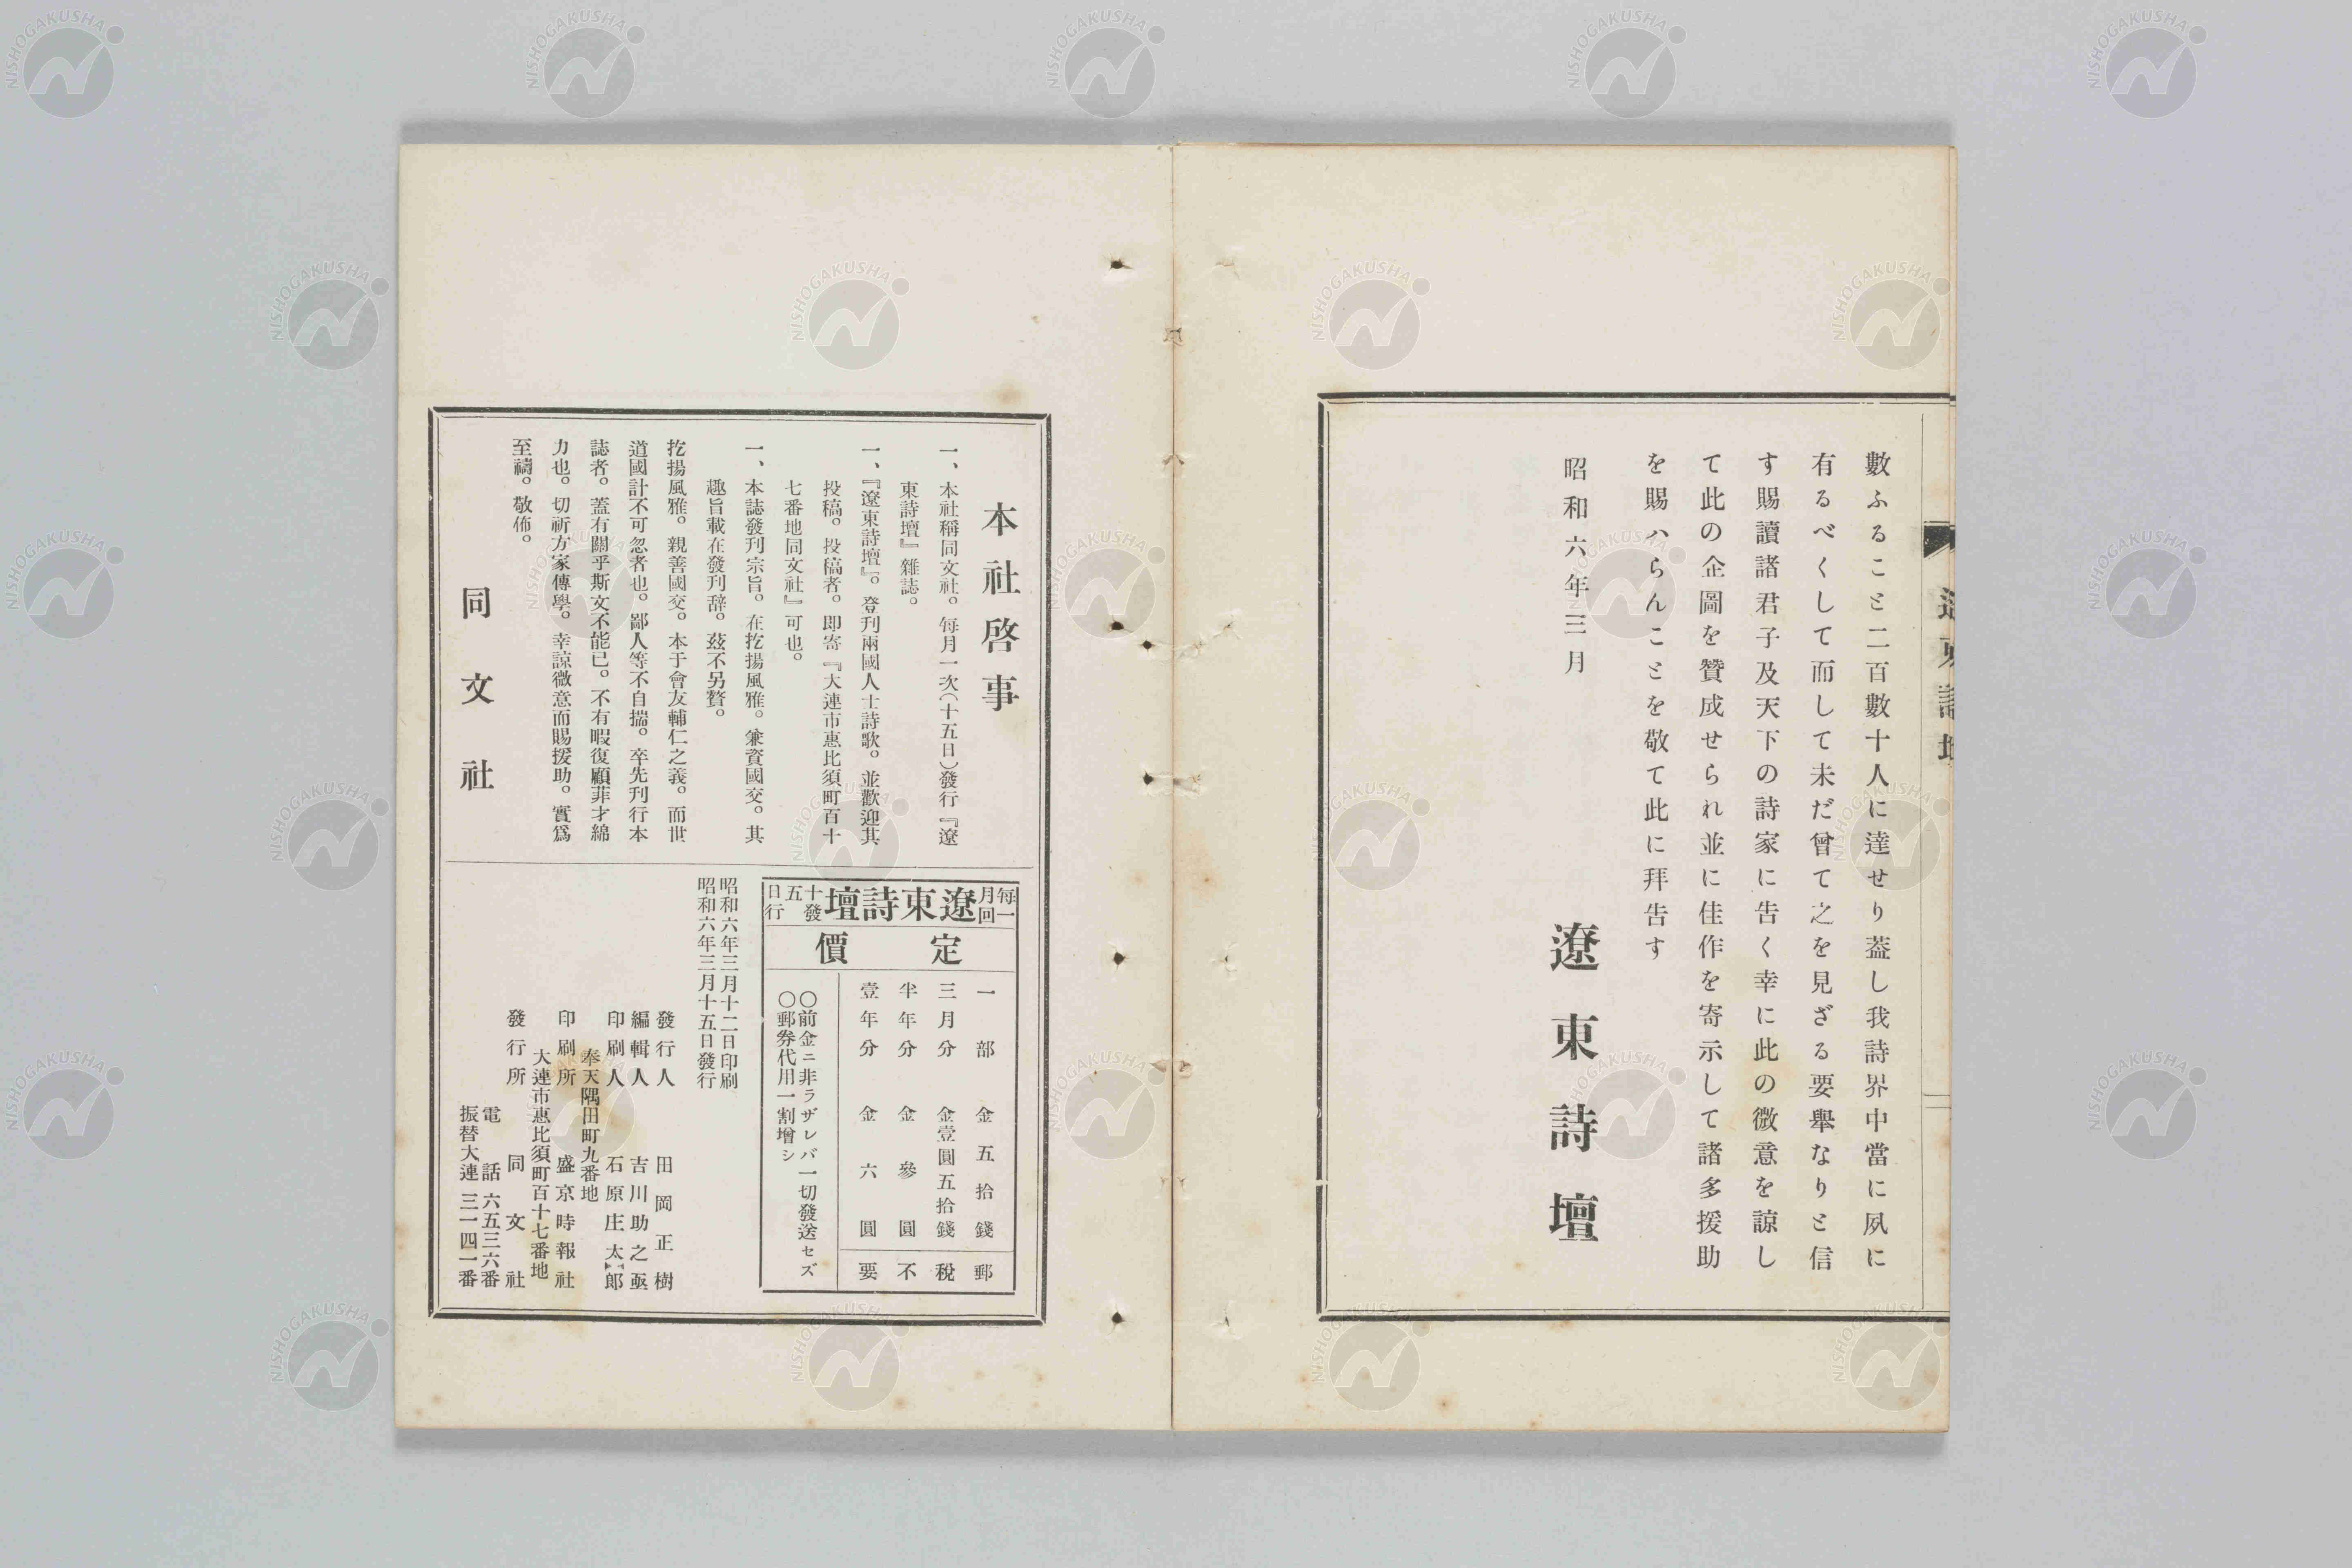 遼東詩壇
數ふること二百數十人に達せり蓋し我詩界中當に夙に
有るべくして而して未だ曾て之を見ざる要擧なりと信
す賜讀諸君子及天下の詩家に告く幸に此の微意を諒し
て此の企圖を贊成せられ並に佳作を寄示して諸多援助
を賜ハらんことを敬て此に拜告す
昭和六年三月
遼東詩壇
本社啓事
一、本社稱同文社。每月一次(十五日)發行『遼
東詩壇』雜誌。
一、『遼東詩壇』。登刊兩國人士詩歌。並歡迎其
投稿。投稿者。即寄『大連市惠比須町百十
七番地同文社』可也。
一、本誌發刊宗旨。在扢揚風雅。兼資國交。其
趣旨載在發刊辞。茲不另贅。
扢揚風雅。親善國交。本于會友輔仁之義。而世
道國計不可忽者也。鄙人等不自揣。卒先刊行本
誌者。蓋有關乎斯文不能已。不有暇復顧菲才綿
力也。切祈方家傳學。幸諒微意而賜援助。實爲
至禱。敬佈。
同文社
每月一回
遼東詩壇
十五日發行
定價
一部 金五拾錢 郵
三月分 金壹圓五拾錢 稅
半年分 金參圓 不
壹年分 金六圓 要
〇前金ニ非ラザレバ一切發送セズ
〇郵券代用一割增シ
昭和六年三月十二日印刷
昭和六年三月十五日發行
發行人 田岡正樹
編輯人 吉川助之亟
印刷人 石原庄太郎
奉天隅田町九番地
印刷所 盛京時報社
大連市惠比須町百十七番地
發行所 同文社
電話 六五三六番
振替大連 三一四一番
NISHOGAKUSHA